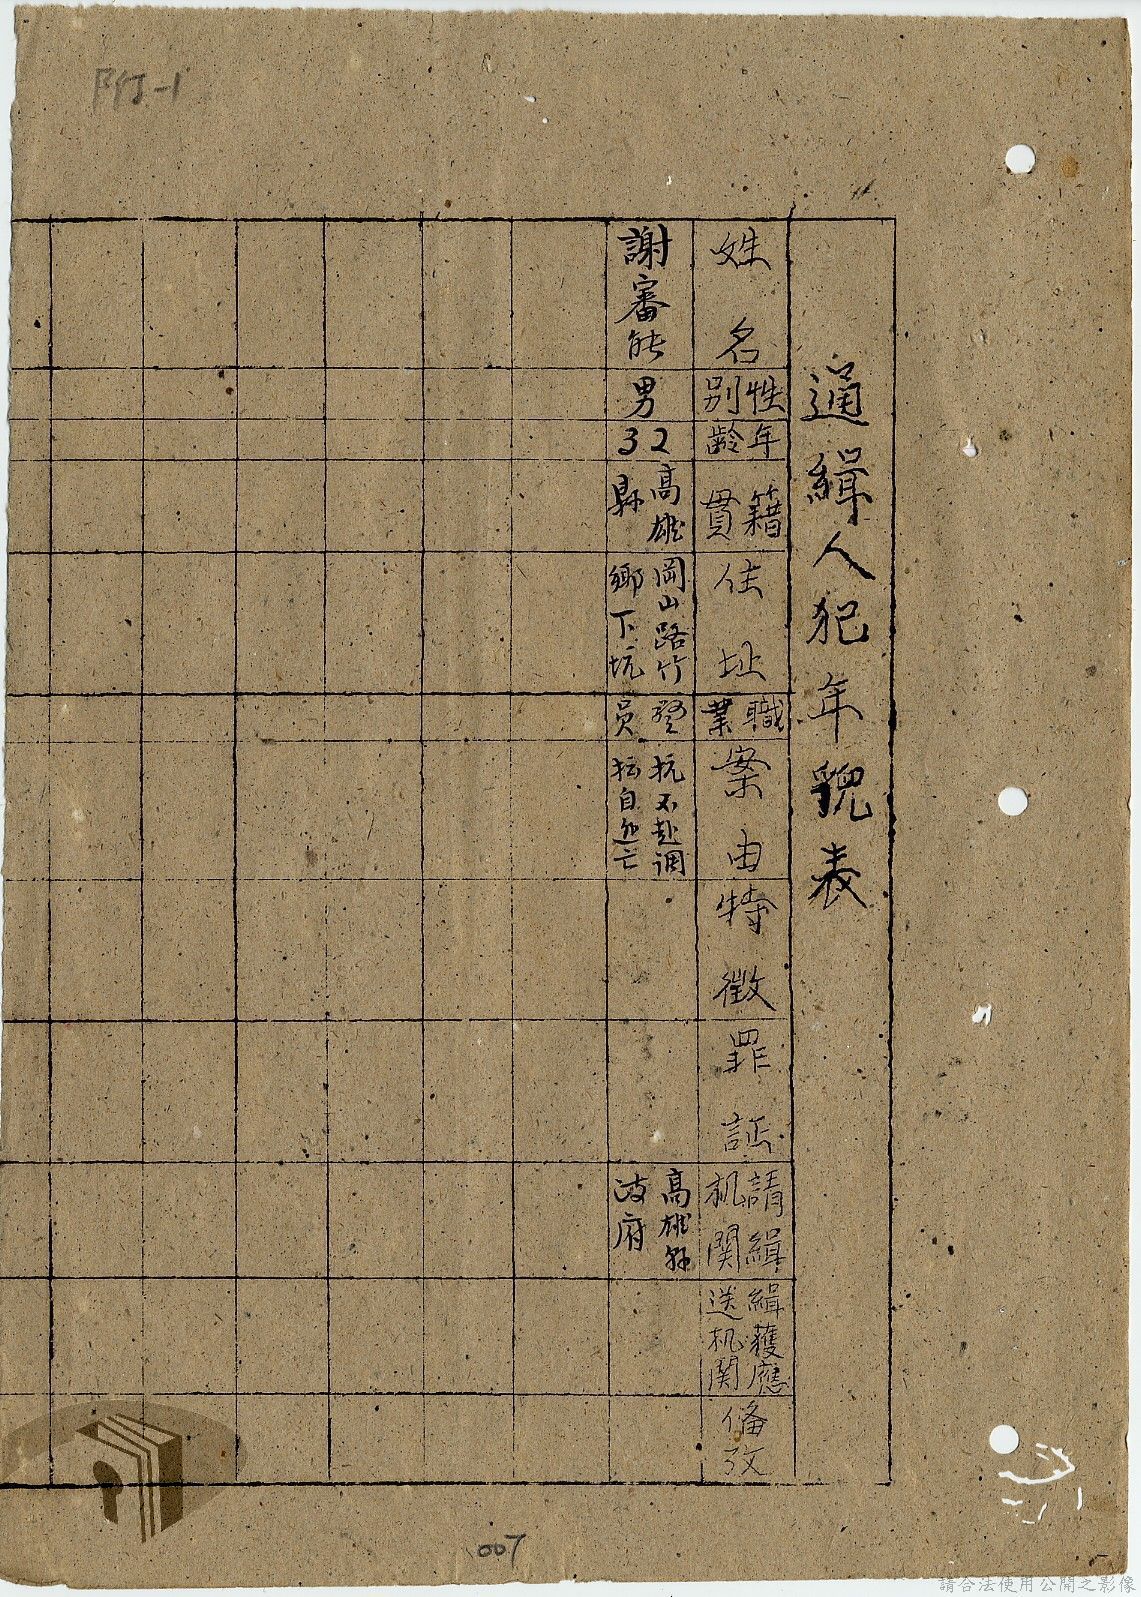 附-1
通緝人犯年貌表
姓名
性別
年齡
籍貫
住址
職業
案由
特徵
罪証
請緝机関
緝獲應送机関
備攷
謝審能
男
32
高雄
縣
岡山路竹
鄉下坑
員
抗不赴調
擅自逃亡
高雄縣
政府
007
請合法使用公開之影像